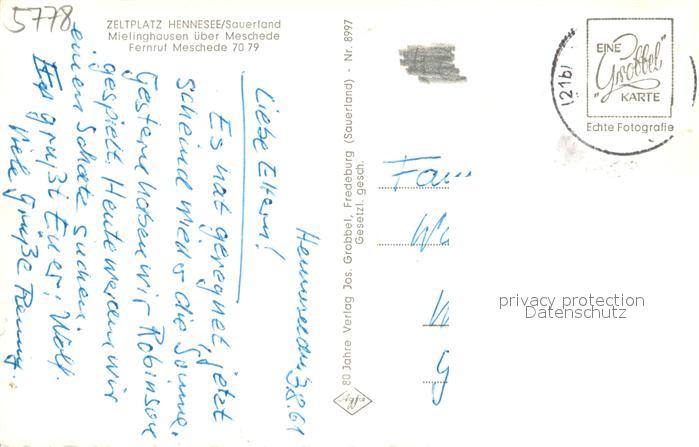 5778
ZELTPLATZ HENNESEE/Sauerland
Mielinghausen über Meschede
Fernruf Meschede 70 79
Hennesee, den 3.8.61
Liebe Eltern!
Es hat geregnet, jetzt
scheind wieder die Sonne.
Gestern haben wir Robinson
gespielt. Heute werden wir
einen Schatz suchen.
Es grüßt Euer Wolf.
Viele Grüße
80 Jahre Verlag Jos. Grobbel, Fredeburg (Sauerland) - Nr. 8997
Gesetzl. gesch.
Agfa
(21b)
EINE
"Grobbel"
KARTE
Echte Fotografie
Fam
W
W
privacy protection
Datenschutz